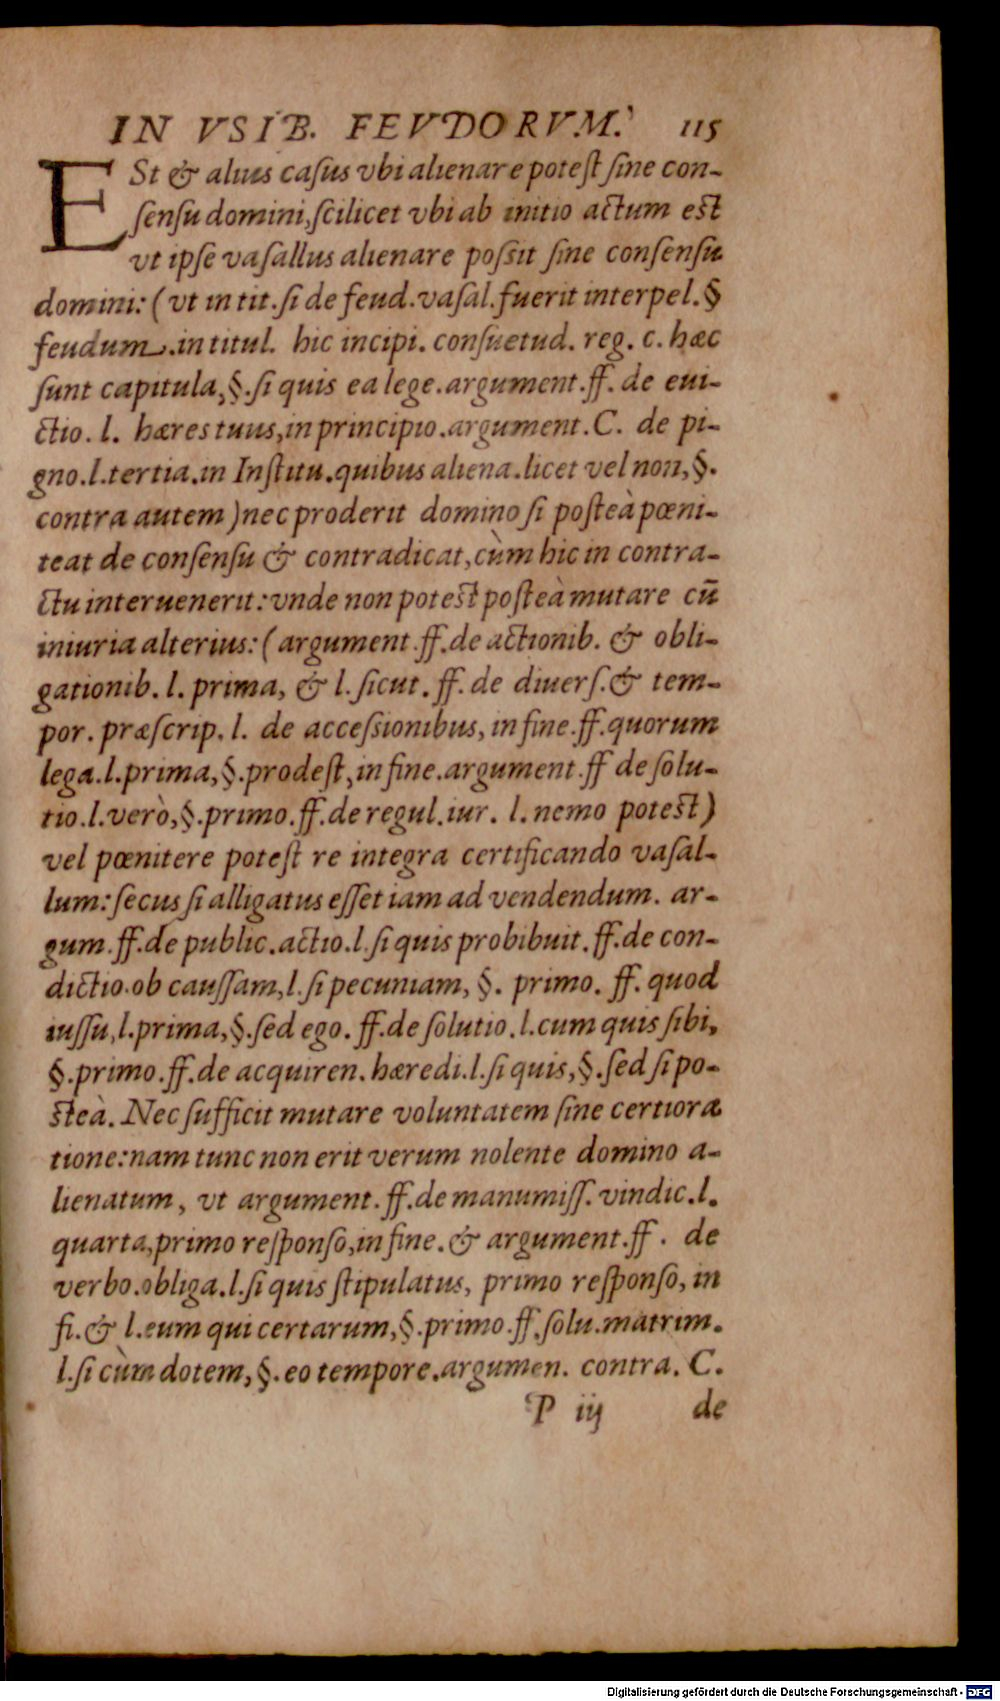 IN VSIB. FEVDORVM. 115
ESt & alius casus vbi alienare potest sine con-
sensu domini, scilicet vbi ab initio actum est
vt ipse vasallus alienare possit sine consensu
domini: ( vt in tit. si de feud. vasal. fuerit interpel. §
feudum. in titul. hic incipi. consuetud. reg. c. hæc
sunt capitula, §. si quis ea lege. argument. ff. de eui-
ctio. l. hæres tuus, in principio. argument. C. de pi-
gno. l. tertia. in Institu. quibus aliena. licet vel non, §.
contra autem ) nec proderit domino si posteà pœni-
teat de consensu & contradicat, cùm hic in contra-
ctu interuenerit: vnde non potest posteà mutare cū
iniuria alterius: ( argument. ff. de actionib. & obli-
gationib. l. prima, & l. sicut. ff. de diuers. & tem-
por. præscrip. l. de accessionibus, in fine. ff. quorum
lega. l. prima, §. prodest, in fine. argument. ff de solu-
tio. l. verò, §. primo. ff. de regul. iur. l. nemo potest )
vel pœnitere potest re integra certificando vasal-
lum: secus si alligatus esset iam ad vendendum. ar-
gum. ff. de public. actio. l. si quis probibuit. ff. de con-
dictio. ob caussam, l. si pecuniam, §. primo. ff. quod
iussu, l. prima, §. sed ego. ff. de solutio. l. cum quis sibi,
§. primo. ff. de acquiren. hæredi. l. si quis, §. sed si po-
steà. Nec sufficit mutare voluntatem sine certiora
tione: nam tunc non erit verum nolente domino a-
lienatum, vt argument. ff. de manumiss. vindic. l.
quarta, primo responso, in fine. & argument. ff. de
verbo. obliga. l. si quis stipulatus, primo responso, in
fi. & l. eum qui certarum, §. primo. ff. solu. matrim.
l. si cùm dotem, §. eo tempore. argumen. contra. C.
P iij de
Digitalisierung gefördert durch die Deutsche Forschungsgemeinschaft - DFG